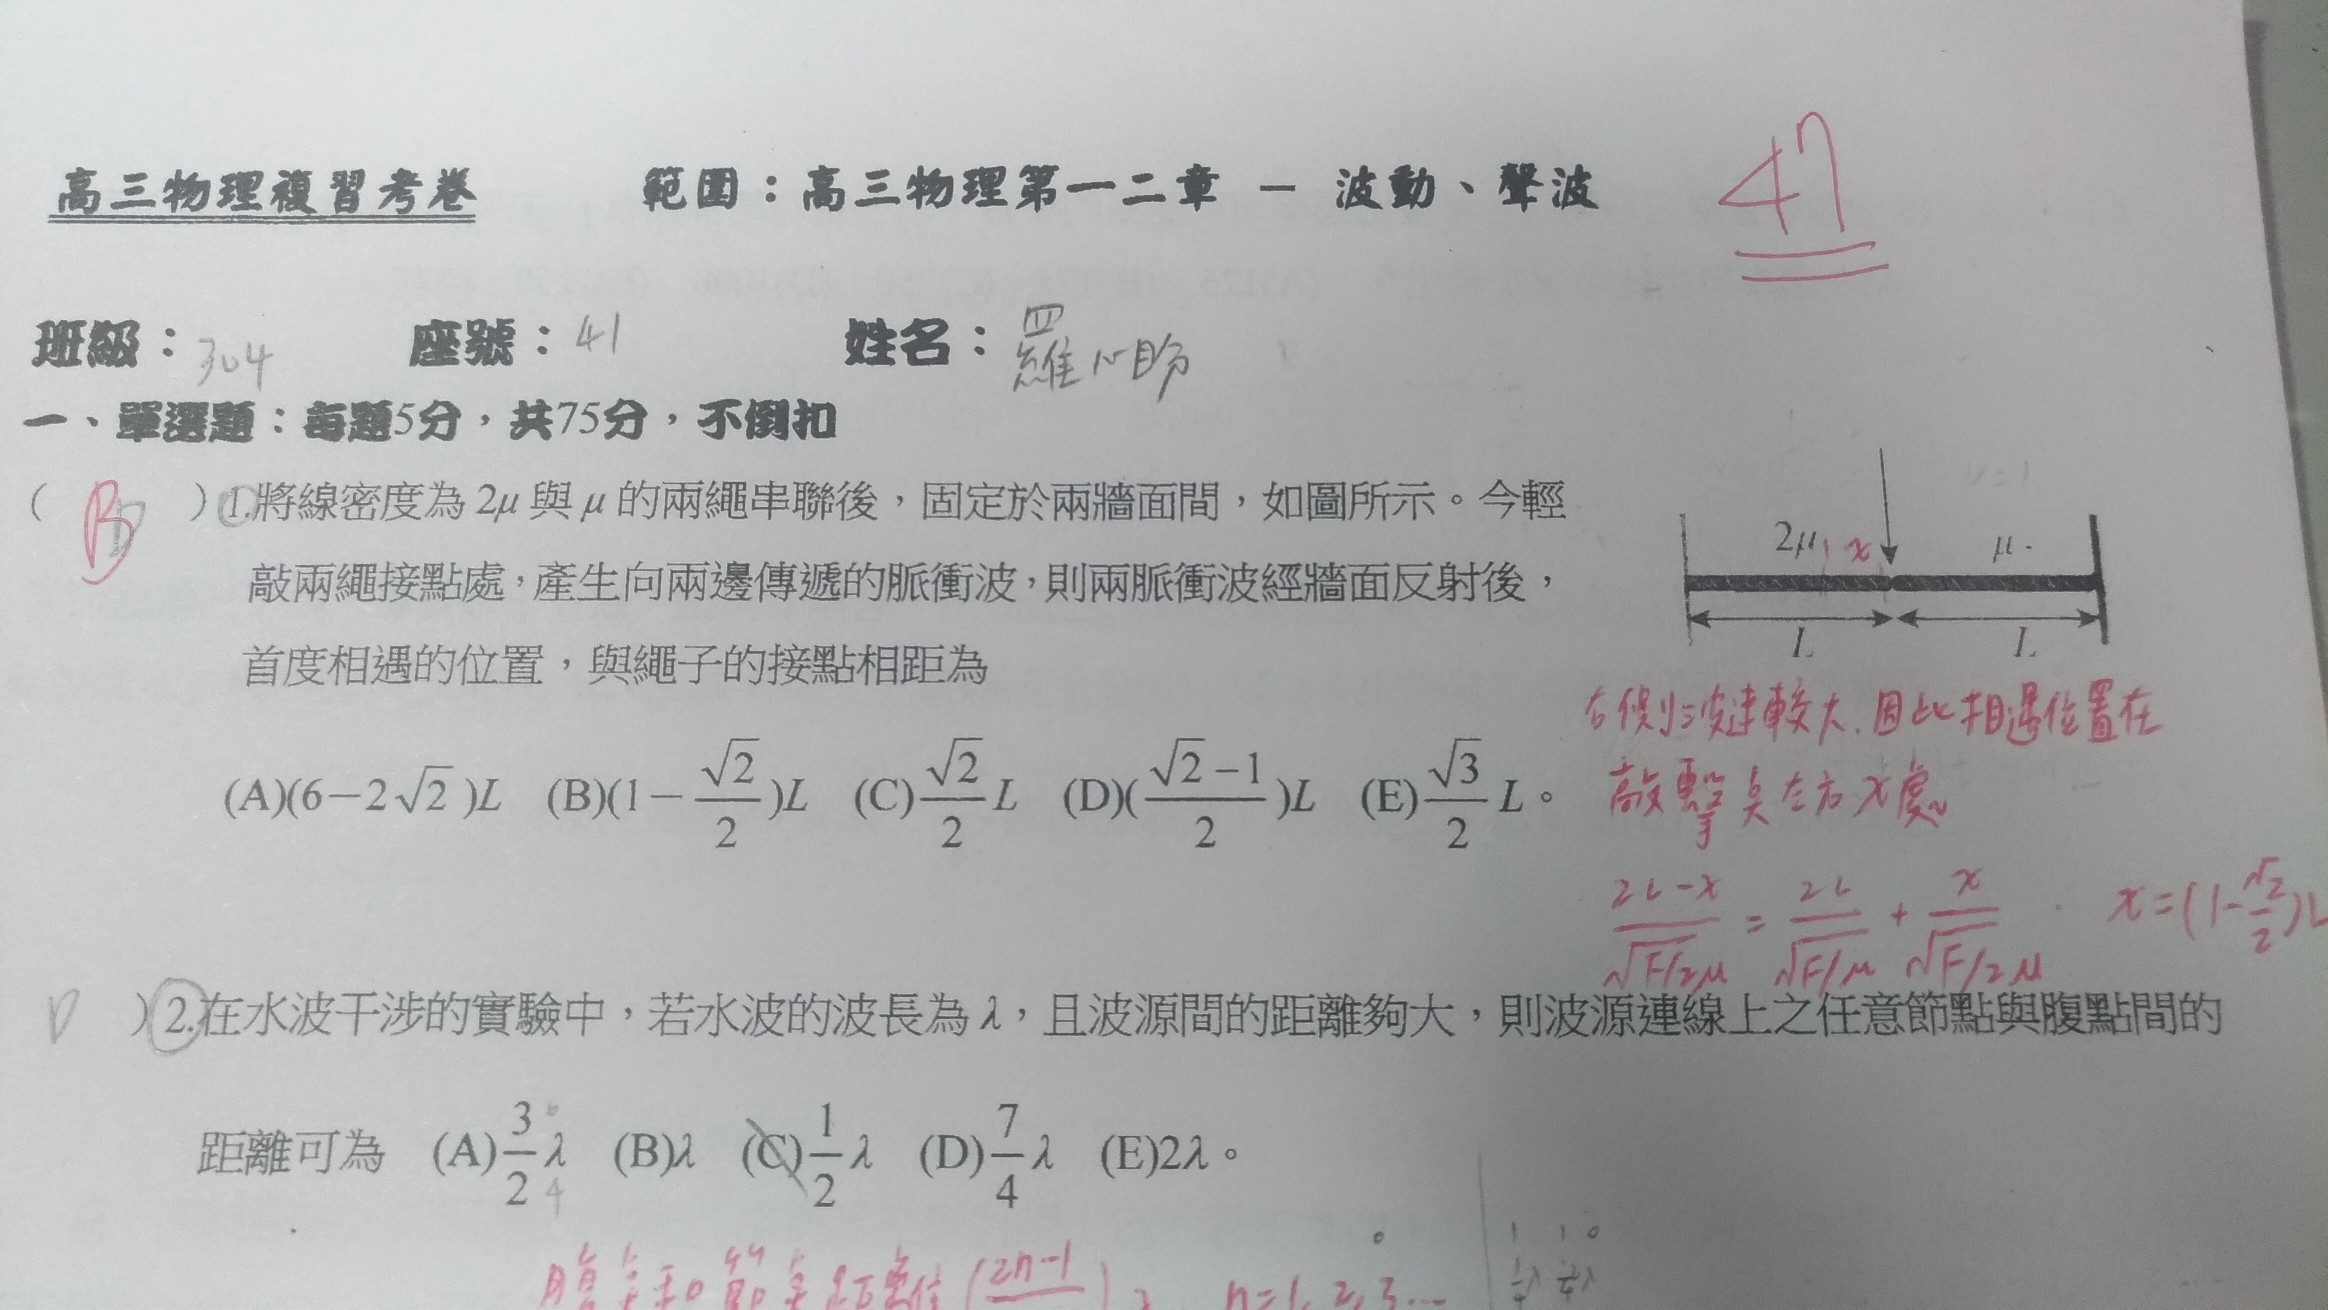 高三物理複習考卷 範圍：高三物理第一二章 － 波動、聲波
47
班級：304 座號：41 姓名：羅心盼
一、單選題：每題5分，共75分，不倒扣
( B )1.將線密度為2μ與μ的兩繩串聯後，固定於兩牆面間，如圖所示。今輕
敲兩繩接點處，產生向兩邊傳遞的脈衝波，則兩脈衝波經牆面反射後，
首度相遇的位置，與繩子的接點相距為
(A)(6－2√2)L (B)(1－√2/2)L (C)√2/2 L (D)(√2－1/2)L (E)√3/2 L。
2μ x μ
L L
右側波速較大，因此相遇位置在
敲擊點左方x處
2L-x/√F/2μ = 2L/√F/μ + x/√F/2μ x=(1-√2/2)L
D )2.在水波干涉的實驗中，若水波的波長為λ，且波源間的距離夠大，則波源連線上之任意節點與腹點間的
距離可為 (A)3/2 λ (B)λ (C)1/2 λ (D)7/4 λ (E)2λ。
腹點和節點距離(2n-1 n=1,2,3...